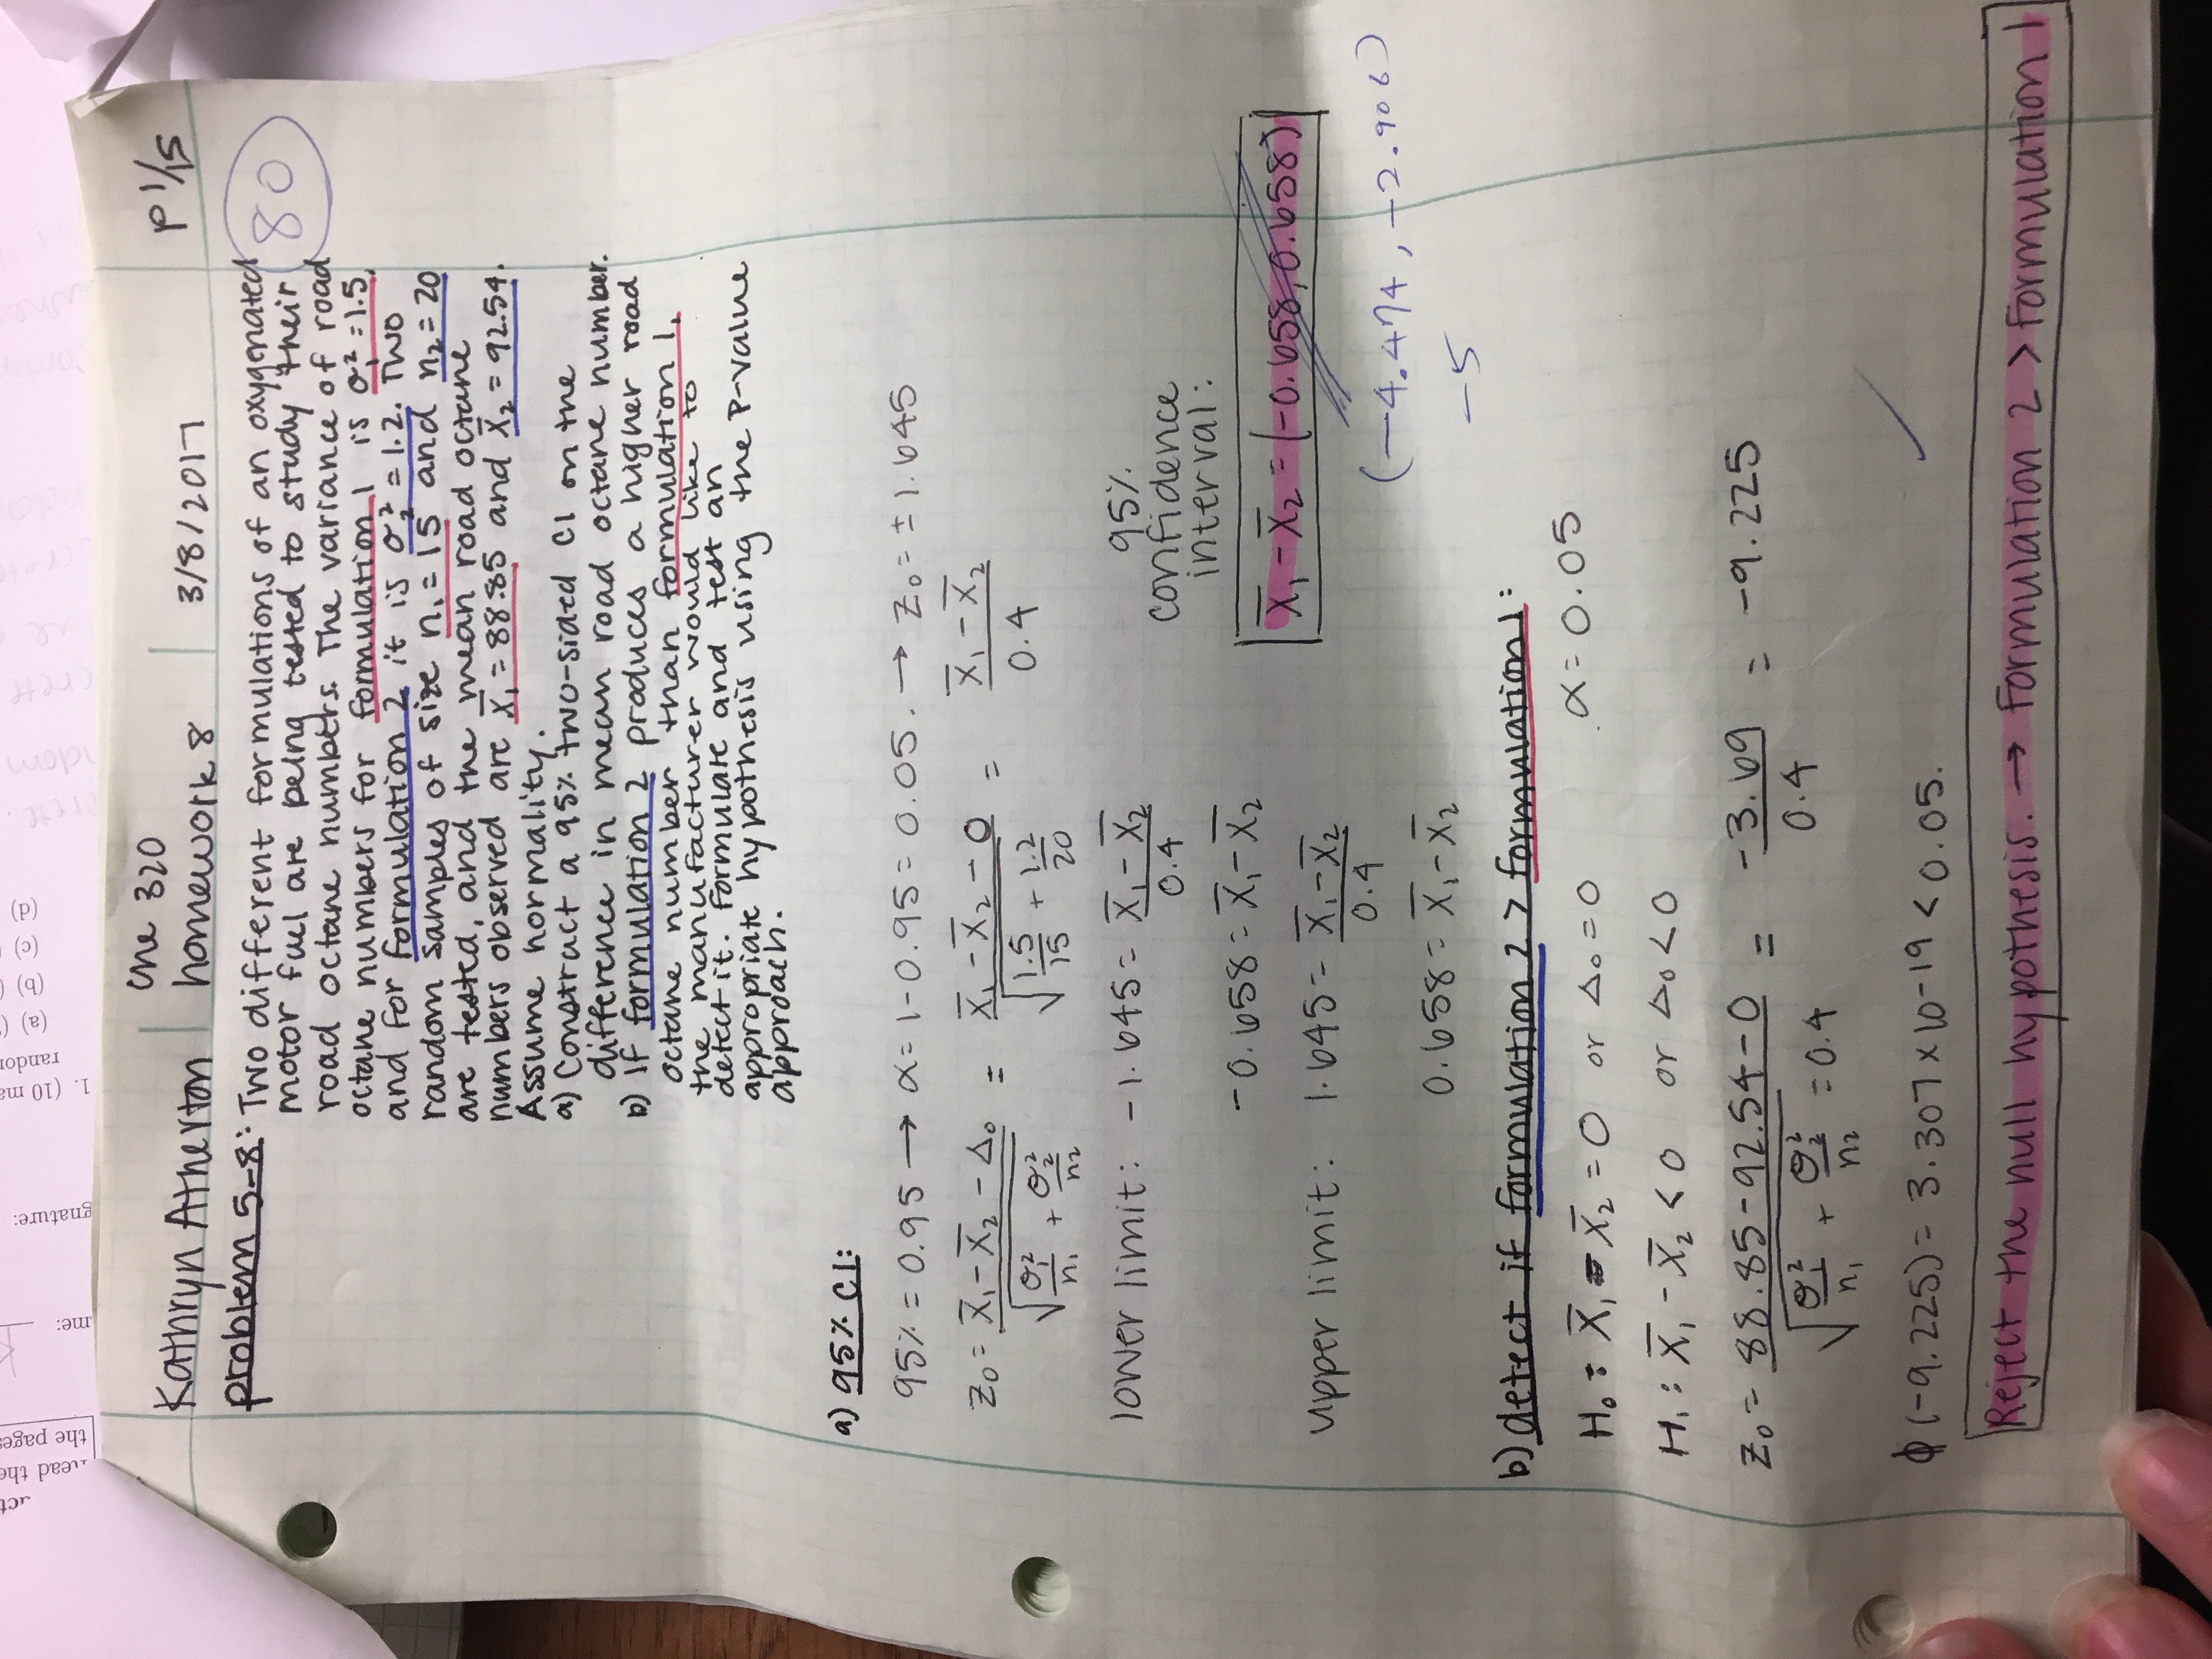 ead the
the pages
me:
gnature:
1. (10 ma
random
(a)
(b)
(c)
(d)
Kathryn Atherton
che 320
homework 8
3/8/2017
P 1/15
80
problem 5-8: Two different formulations of an oxygenated
motor fuel are being tested to study their
road octane numbers. The variance of road
octane numbers for formulation 1 is σ₁² = 1.5,
and for formulation 2 it is σ₂² = 1.2. Two
random samples of size n₁ = 15 and n₂ = 20
are tested, and the mean road octane
numbers observed are x̄₁ = 88.85 and x̄₂ = 92.54.
Assume normality.
a) Construct a 95% two-sided CI on the
difference in mean road octane number.
b) If formulation 2 produces a higher road
octane number than formulation 1,
the manufacturer would like to
detect it. Formulate and test an
appropriate hypothesis using the P-value
approach.
a) 95% CI:
95% = 0.95 → α = 1-0.95 = 0.05. → Z₀ = ± 1.645
Z₀ = (X̄₁ - X̄₂ - Δ₀) / √(σ₁²/n₁ + σ₂²/n₂) = (X̄₁ - X̄₂ - 0) / √(1.5/15 + 1.2/20) = (X̄₁ - X̄₂) / 0.4
lower limit: -1.645 = (X̄₁ - X̄₂) / 0.4
-0.658 = X̄₁ - X̄₂
upper limit: 1.645 = (X̄₁ - X̄₂) / 0.4
0.658 = X̄₁ - X̄₂
95%
confidence
interval:
X̄₁ - X̄₂ = (-0.658, 0.658)
(-4.474, -2.906)
-5
b) detect if formulation 2 > formulation 1:
H₀: X̄₁ - X̄₂ = 0 or Δ₀ = 0
α = 0.05
H₁: X̄₁ - X̄₂ < 0 or Δ₀ < 0
Z₀ = (88.85 - 92.54 - 0) / (√(σ₁²/n₁ + σ₂²/n₂) = 0.4) = -3.69 / 0.4 = -9.225
✓
ϕ(-9.225) = 3.307 x 10⁻¹⁹ < 0.05.
Reject the null hypothesis. → Formulation 2 > Formulation 1